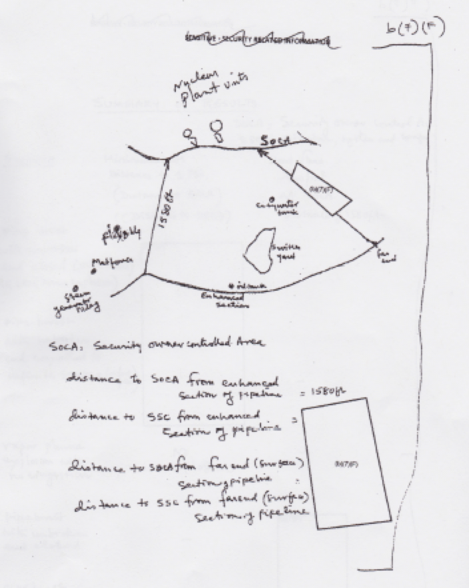 b(7)(F)
SENSITIVE - SECURITY RELATED INFORMATION
Nuclear
Plant units
SOCA
(b)(7)(F)
1580ft
tank
Switch
yard
far
end
Steam
generator
Enhanced
section
SOCA: Security owner controlled Area
distance to SOCA from enhanced
section of pipeline = 1580ft
distance to SSC from enhanced =
section of pipeline
(b)(7)(F)
distance to SOCA from far end (surface)
section of pipeline =
distance to SSC from far end (surface)
section of pipeline